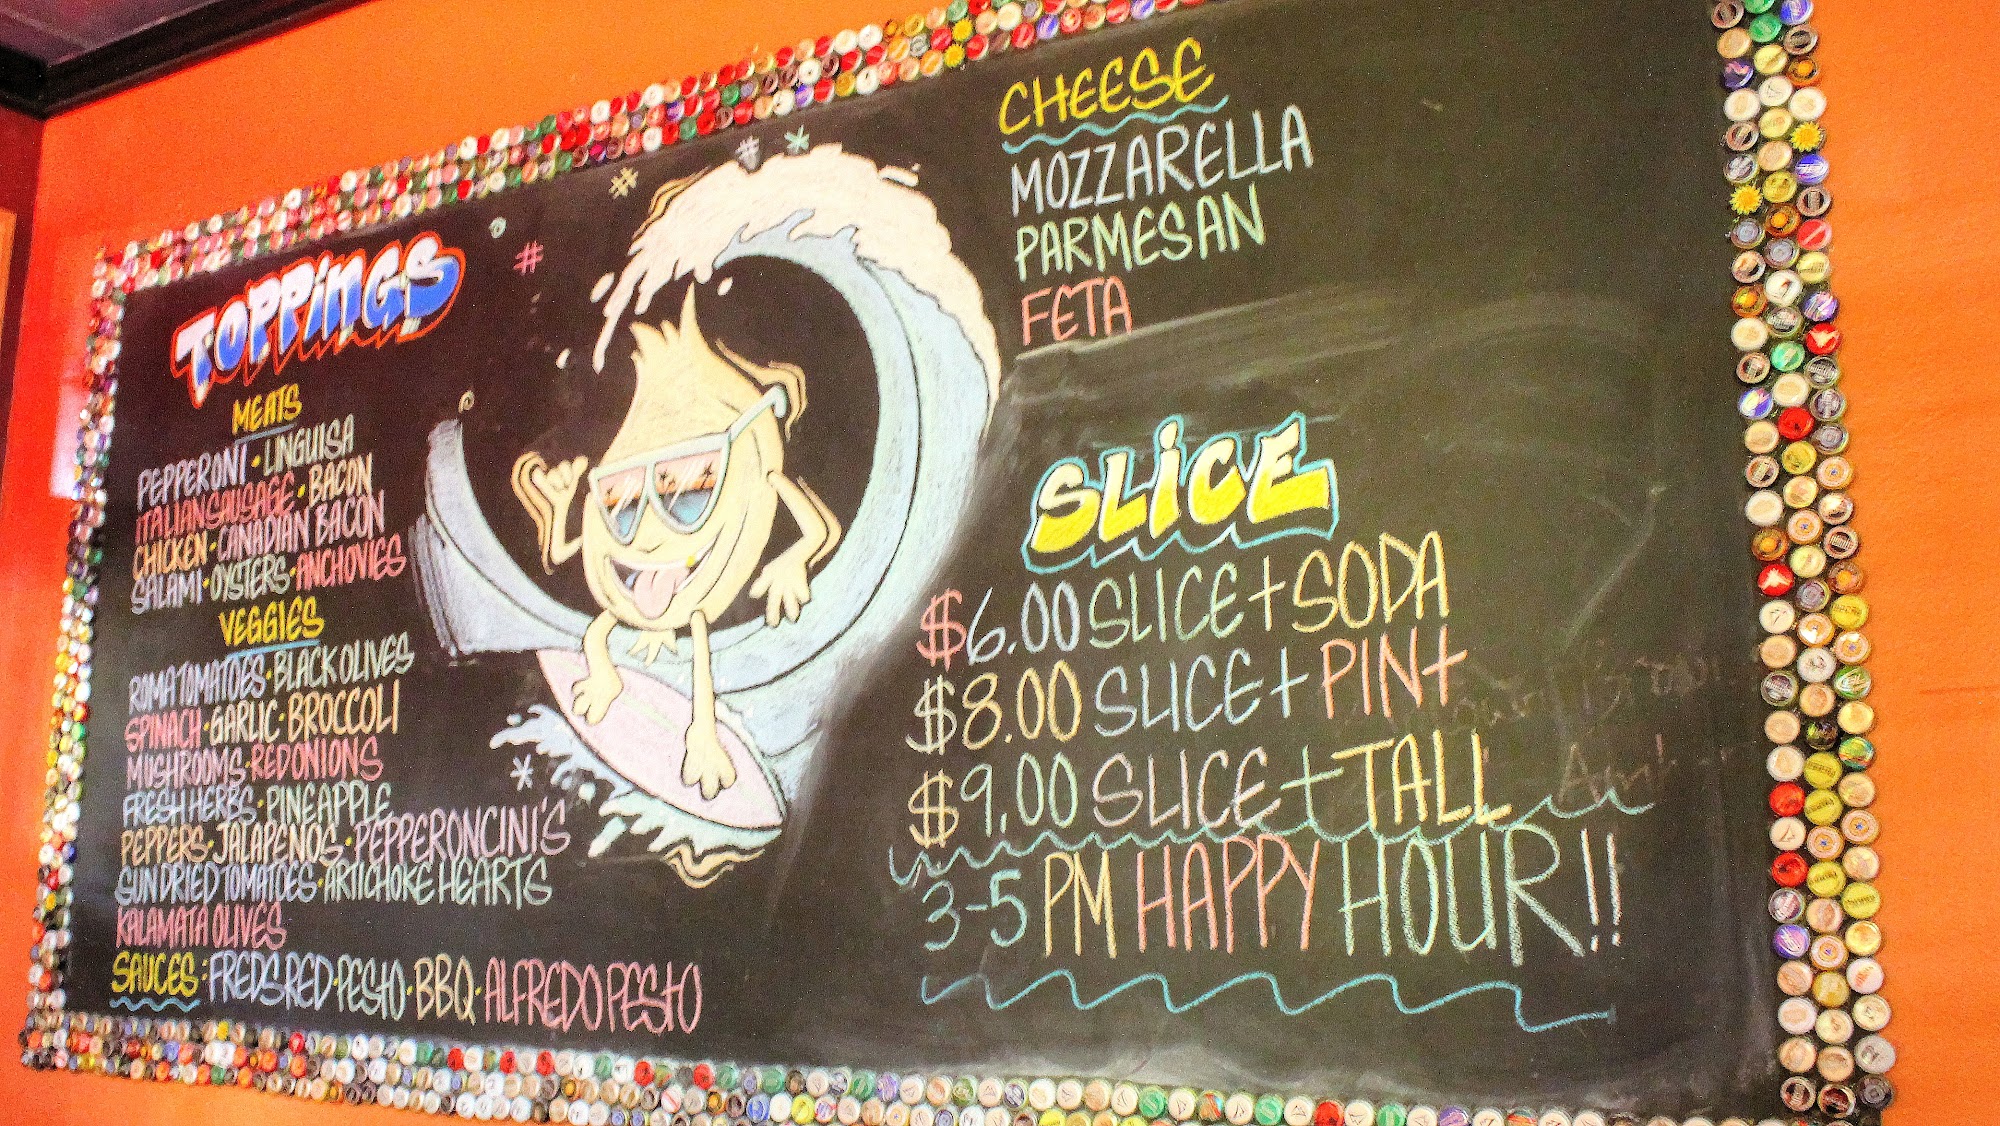 TOPPINGS
MEATS
PEPPERONI · LINGUISA
ITALIAN SAUSAGE · BACON
CHICKEN · CANADIAN BACON
SALAMI · OYSTERS · ANCHOVIES
VEGGIES
ROMA TOMATOES · BLACK OLIVES
SPINACH · GARLIC · BROCCOLI
MUSHROOMS · RED ONIONS
FRESH HERBS · PINEAPPLE
PEPPERS · JALAPENOS · PEPPERONCINI'S
SUNDRIED TOMATOES · ARTICHOKE HEARTS
KALAMATA OLIVES
SAUCES: FREDS RED · PESTO · BBQ · ALFREDO PESTO
CHEESE
MOZZARELLA
PARMESAN
FETA
SLICE
$6.00 SLICE + SODA
$8.00 SLICE + PINT
$9.00 SLICE + TALL
3-5 PM HAPPY HOUR!!